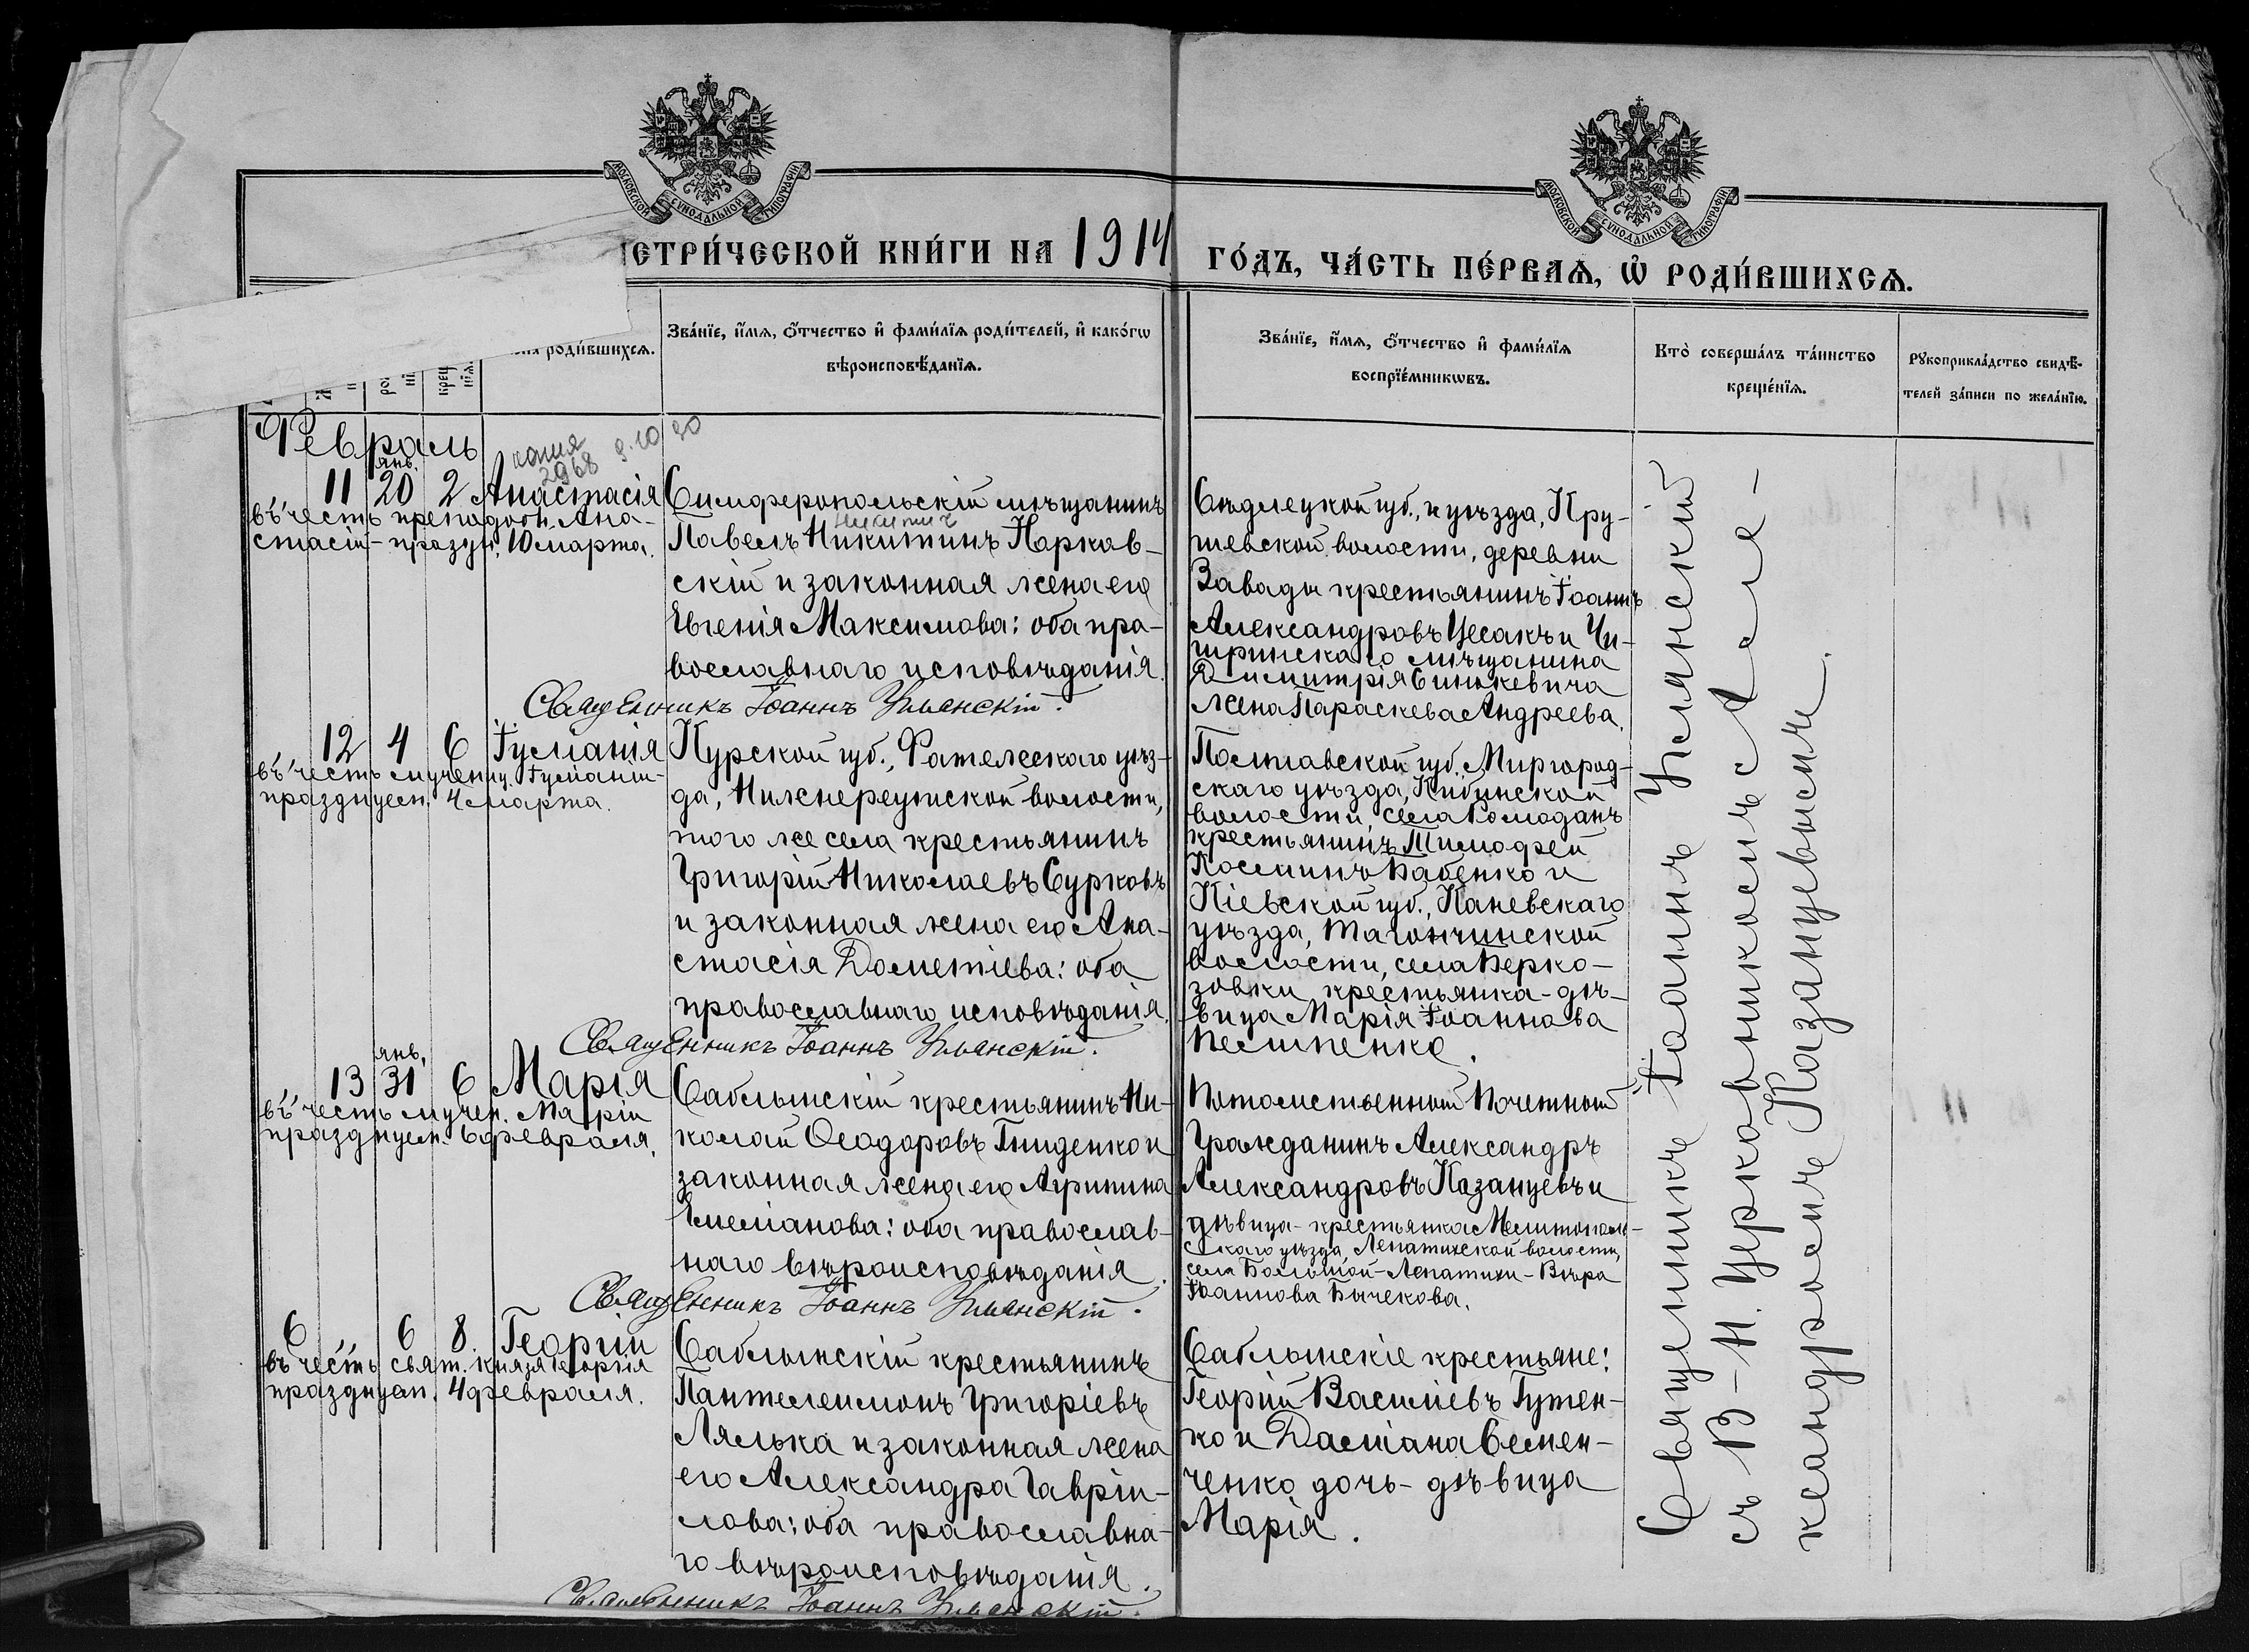 МОСКОВСКОЙ СѴНОДАЛЬНОЙ ТИПОГРАФІИ
МОСКОВСКОЙ СѴНОДАЛЬНОЙ ТИПОГРАФІИ
ЕТРИ́ЧЕСКОЙ КНИ́ГИ НА 1914 ГО́ДЪ, ЧА́СТЬ ПЕ́РВАѦ, Ѡ҆ РОДИ́ВШИХСѦ.
роди́вшихсѧ.
Зва́нїе, и҆́мѧ, ѻ҆́тчество и҆ фами́лїѧ роди́телей, и҆ како́гѡ
вѣроисповѣ́данїѧ.
Зва́нїе, и҆́мѧ, ѻ҆́тчество и҆ фами́лїѧ
воспрїе́мникѡвъ.
Кто̀ соверша́лъ та́инство
креще́нїѧ.
Рꙋкоприкла́дство свидѣ́-
телей за́писи по жела́нїю.
Февраль
копия
2968 9.10 90
янв.
11 20 2 Анастасія
въ честь преподобн. Ана-
стасіи - праздн. 10 марта.
Симферопольскій мѣщанинъ
Павелъ Никитинъ Харкав-
скій и законная жена его
Евгенія Максимова: оба пра-
вославнаго исповѣданія.
Священникъ Іоаннъ Уманскій.
Сѣдлецкой губ., и уѣзда, Пру-
шевской волости, деревни
Завады крестьянинъ Іоаннъ
Александровъ Цесакъ и Чи-
гиринскаго мѣщанина
Димитрія Синькевича
жена Параскева Андреева.
12 4 6 Іуліанія
въ честь мучениц. Іуліаніи -
празднуем. 4 марта.
Курской губ., Фатежскаго уѣз-
да, Нижнереутской волости,
того же села крестьянинъ
Григорій Николаевъ Сурковъ
и законная жена его Ана-
стасія Дометіева: оба
православнаго исповѣданія.
Священникъ Іоаннъ Уманскій.
Полтавской губ. Миргород-
скаго уѣзда, Кибинской
волости, села Комоданъ
крестьянинъ Тимофей
Косминъ Бабенко и
Кіевской губ., Каневскаго
уѣзда, Таганчинской
волости, села Берко-
зовки крестьянка - дѣ-
вица Марія Іоаннова
янв.
13 31 6 Марія
въ честь мучен. Маріи
празднуем. 6 февраля.
Саблынскій крестьянинъ Ни-
колай Ѳеодоровъ Гниденко и
законная жена его Агрипина
Емеліанова: оба православ-
наго вѣроисповѣданія.
Священникъ Іоаннъ Уманскій.
Потомственный Почетный
Гражданинъ Александръ
Александровъ Казанцевъ и
дѣвица - крестьянка Мелитополь-
скаго уѣзда, Лепатихской волости,
села Большой-Лепатихи - Вѣра
Іоаннова Бычекова.
6 6 8 Георгій
въ честь свят. князя Георгія
празднуем. 4 февраля.
Саблынскій крестьянинъ
Пантелеимонъ Григоріевъ
Лялька и законная жена
его Александра Гавріи-
лова: оба православна-
го вѣроисповѣданія.
Священникъ Іоаннъ Уманскій.
Саблынскіе крестьяне:
Георгій Василіевъ Гутен-
ко и Даміана Семен-
ченко дочь - дѣвица
Марія.
Священникъ Іоаннъ Уманскій
съ В-И. Церковникомъ Але-
ксандромъ Казанцевымъ.